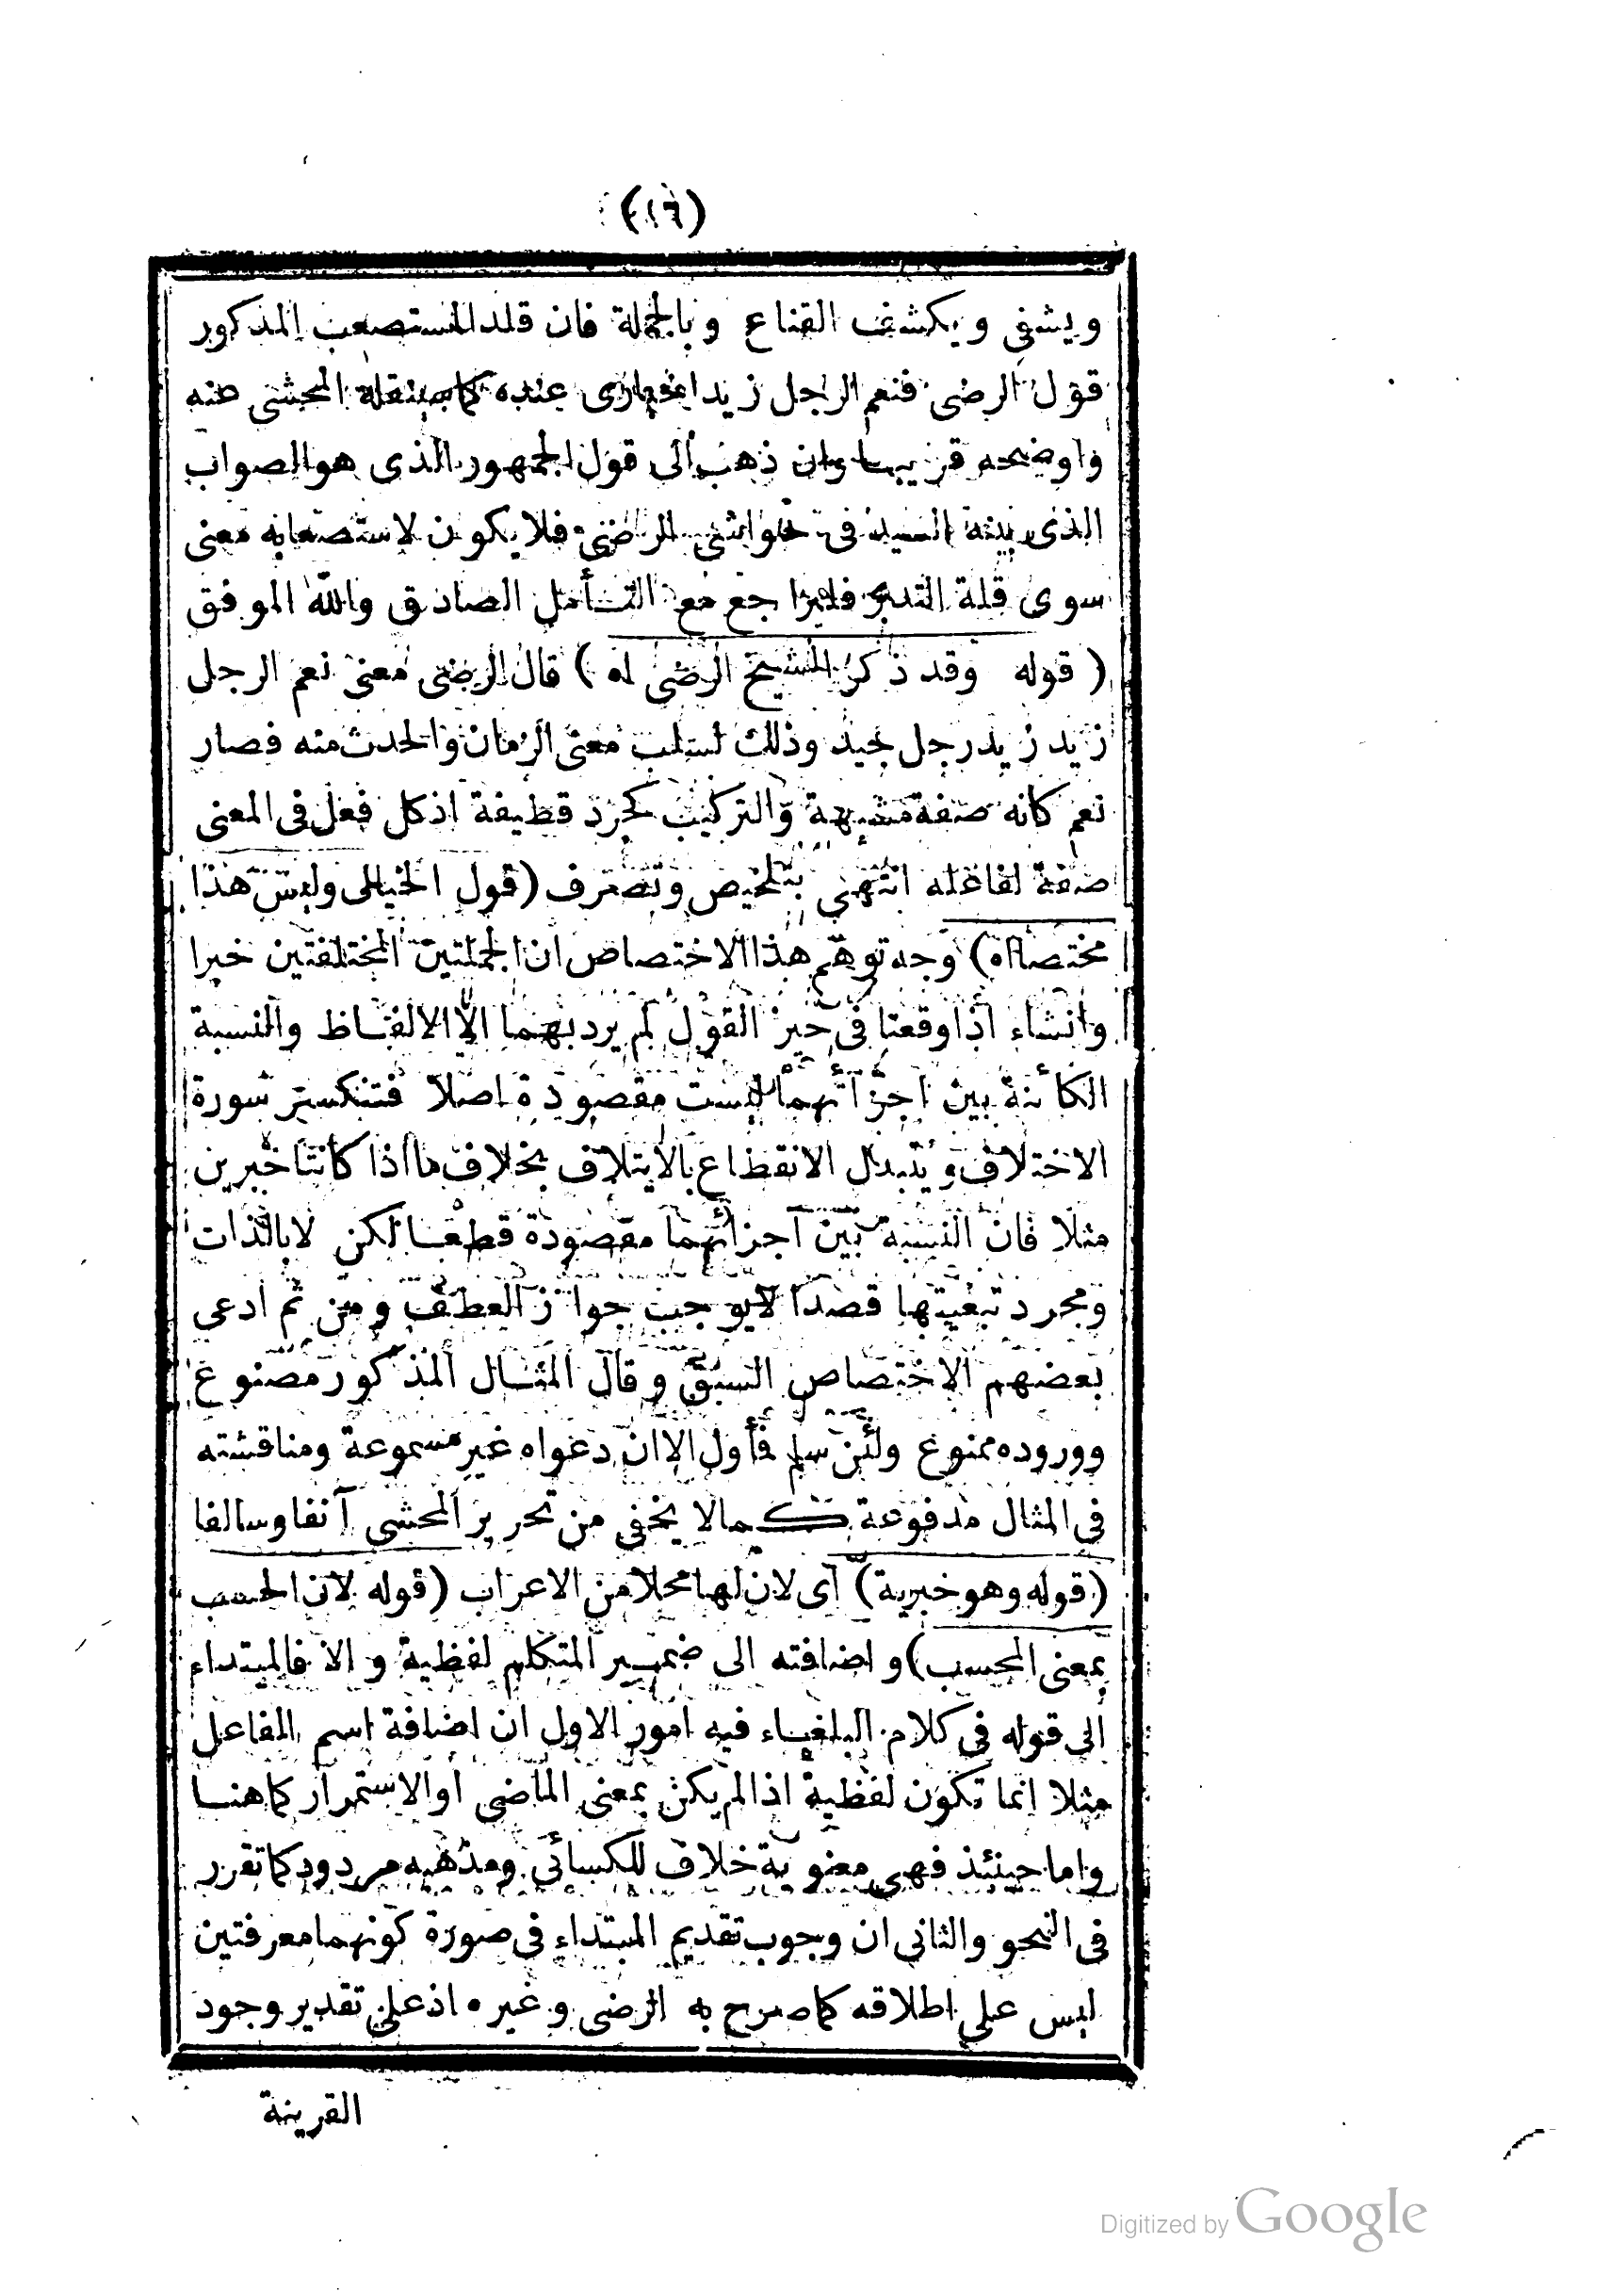 (١٦)
ويشفى ويكشف القناع وبالجملة فان قلد المستصعب المذكور
قول الرضى فنعم الرجل زيد اخبارى عنده كما سينقله المحشى عنه
واوضحه قريبا وان ذهب الى قول الجمهور الذى هو الصواب
الذى بينه السيد فى حواشى الرضى فلا يكون لاستصعابه معنى
سوى قلة التدبر فليراجع مع التأمل الصادق والله الموفق
( قوله وقد ذكر الشيخ الرضى اه ) قال الرضى معنى نعم الرجل
زيد زيد رجل جيد وذلك لسلب معنى الزمان والحدث منه فصار
نعم كانه صفة مشبهة والتركيب كجرد قطيفة اذ كل فعل فى المعنى
صفة لفاعله انتهى بتلخيص وتصرف (قول الخيالى وليس هذا
مختصا اه) وجه توهم هذا الاختصاص ان الجملتين المختلفتين خبرا
وانشاء اذا وقعتا فى حيز القول لم يرد بهما الا الالفاظ والنسبة
الكائنة بين اجزائهما ليست مقصودة اصلا فتنكسر سورة
الاختلاف ويتبدل الانقطاع بالايتلاف بخلاف ما اذا كانتا خبرين
مثلا فان النسبة بين اجزائهما مقصودة قطعا لكن لا بالذات
ومجرد تبعيتها قصدا لا يوجب جواز العطف ومن ثم ادعى
بعضهم الاختصاص السبق وقال المثال المذكور مصنوع
ووروده ممنوع ولئن سلم فأول الا ان دعواه غير مسموعة ومناقشته
فى المثال مدفوعة كما لا يخفى من تحرير المحشى آنفا وسالفا
(قوله وهو خبرية) اى لان لها محلا من الاعراب (قوله لان الحسب
بمعنى المحسب) واضافته الى ضمير المتكلم لفظية والا فالمبتداء
الى قوله فى كلام البلغاء فيه امور الاول ان اضافة اسم الفاعل
مثلا انما تكون لفظية اذا لم يكن بمعنى الماضى او الاستمرار كما هنا
واما حينئذ فهى معنوية خلاف للكسائى ومذهبه مردود كما تقرر
فى النحو والثانى ان وجوب تقديم المبتداء فى صورة كونهما معرفتين
ليس على اطلاقه كما صرح به الرضى وغيره اذ على تقدير وجود
القرينة
Digitized by Google